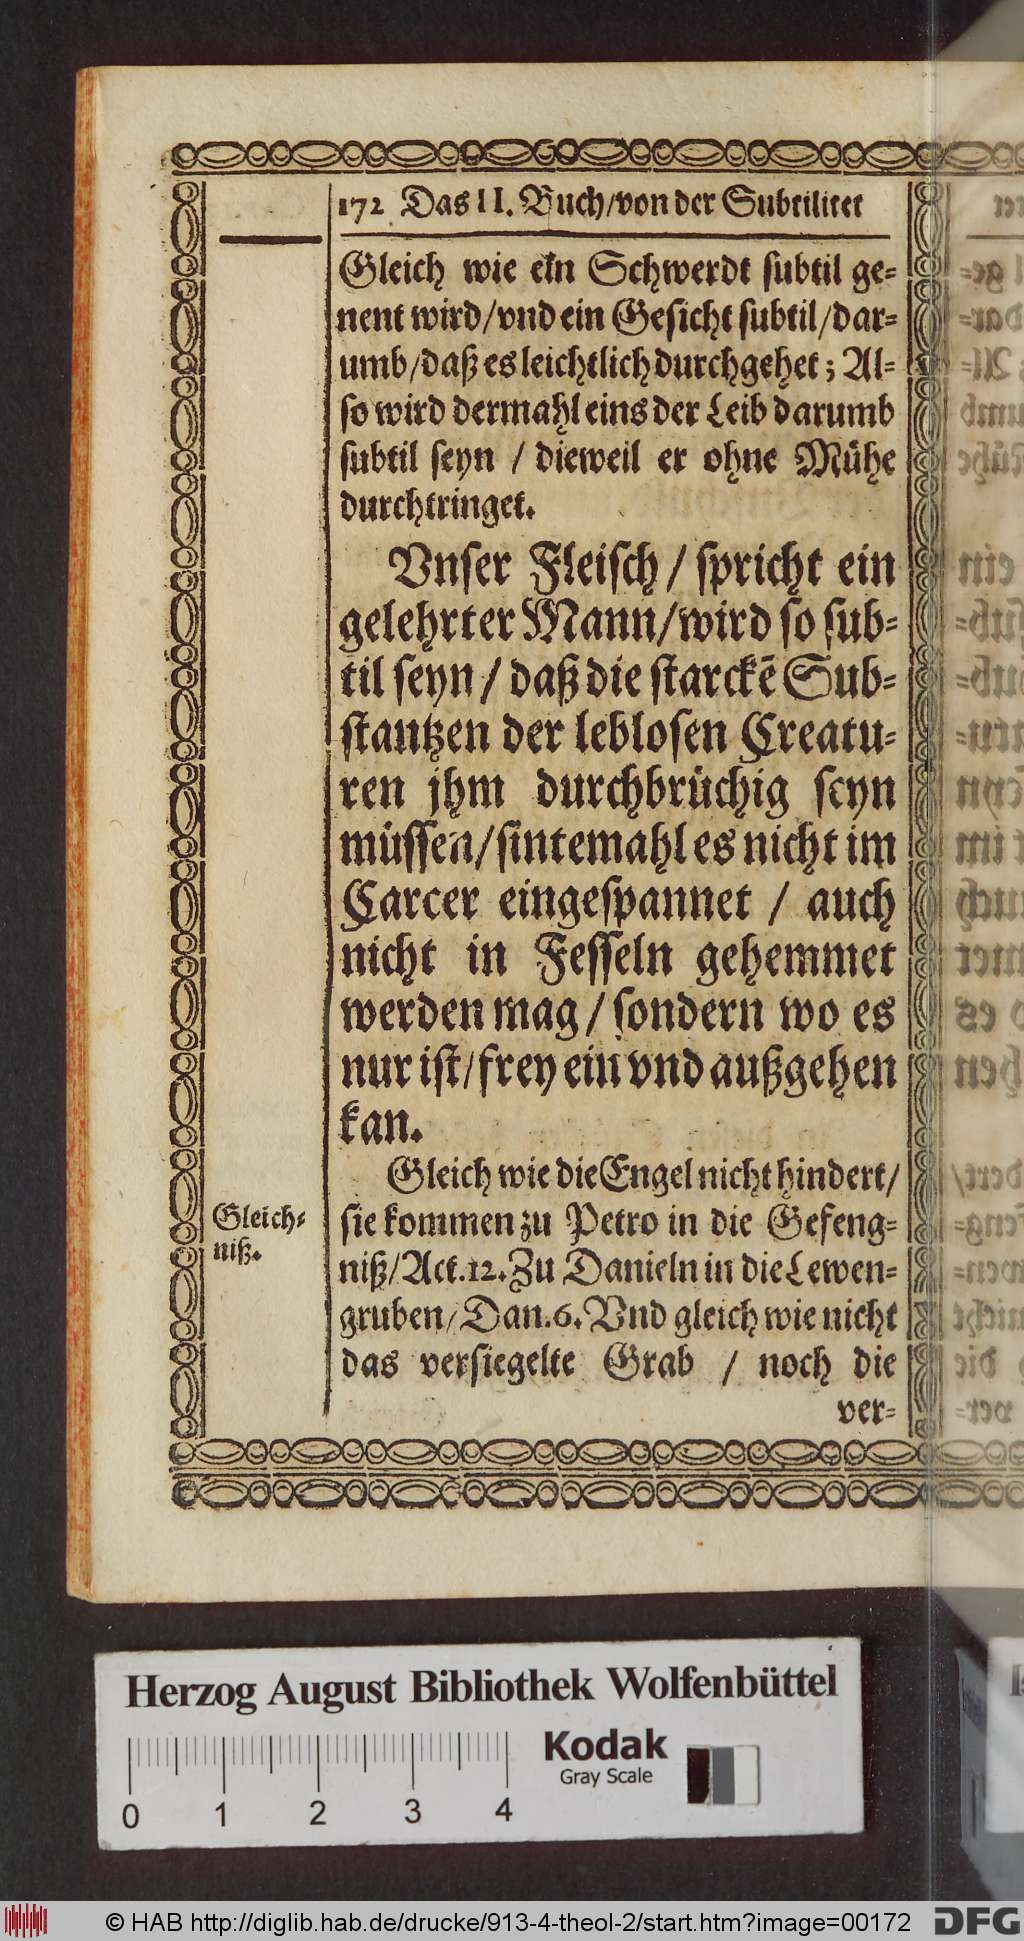 172 Das II. Buch/von der Subtilitet
Gleich wie ein Schwerdt subtil ge=
nent wird/vnd ein Gesicht subtil/dar=
umb/daß es leichtlich durchgehet; Al=
so wird dermahl eins der Leib darumb
subtil seyn / dieweil er ohne Mühe
durchtringet.
Vnser Fleisch / spricht ein
gelehrter Mann/wird so sub=
til seyn / daß die starckē Sub=
stantzen der leblosen Creatu=
ren jhm durchbrüchig seyn
müssen/sintemahl es nicht im
Carcer eingespannet / auch
nicht in Fesseln gehemmet
werden mag / sondern wo es
nur ist/frey ein vnd außgehen
kan.
Gleich wie die Engel nicht hindert/
Gleich=
niß.
sie kommen zu Petro in die Gefeng=
niß/Act.12. Zu Danieln in die Lewen=
gruben/Dan.6. Vnd gleich wie nicht
das versiegelte Grab / noch die
ver=
Herzog August Bibliothek Wolfenbüttel
Kodak
Gray Scale
0 1 2 3 4
© HAB http://diglib.hab.de/drucke/913-4-theol-2/start.htm?image=00172
DFG